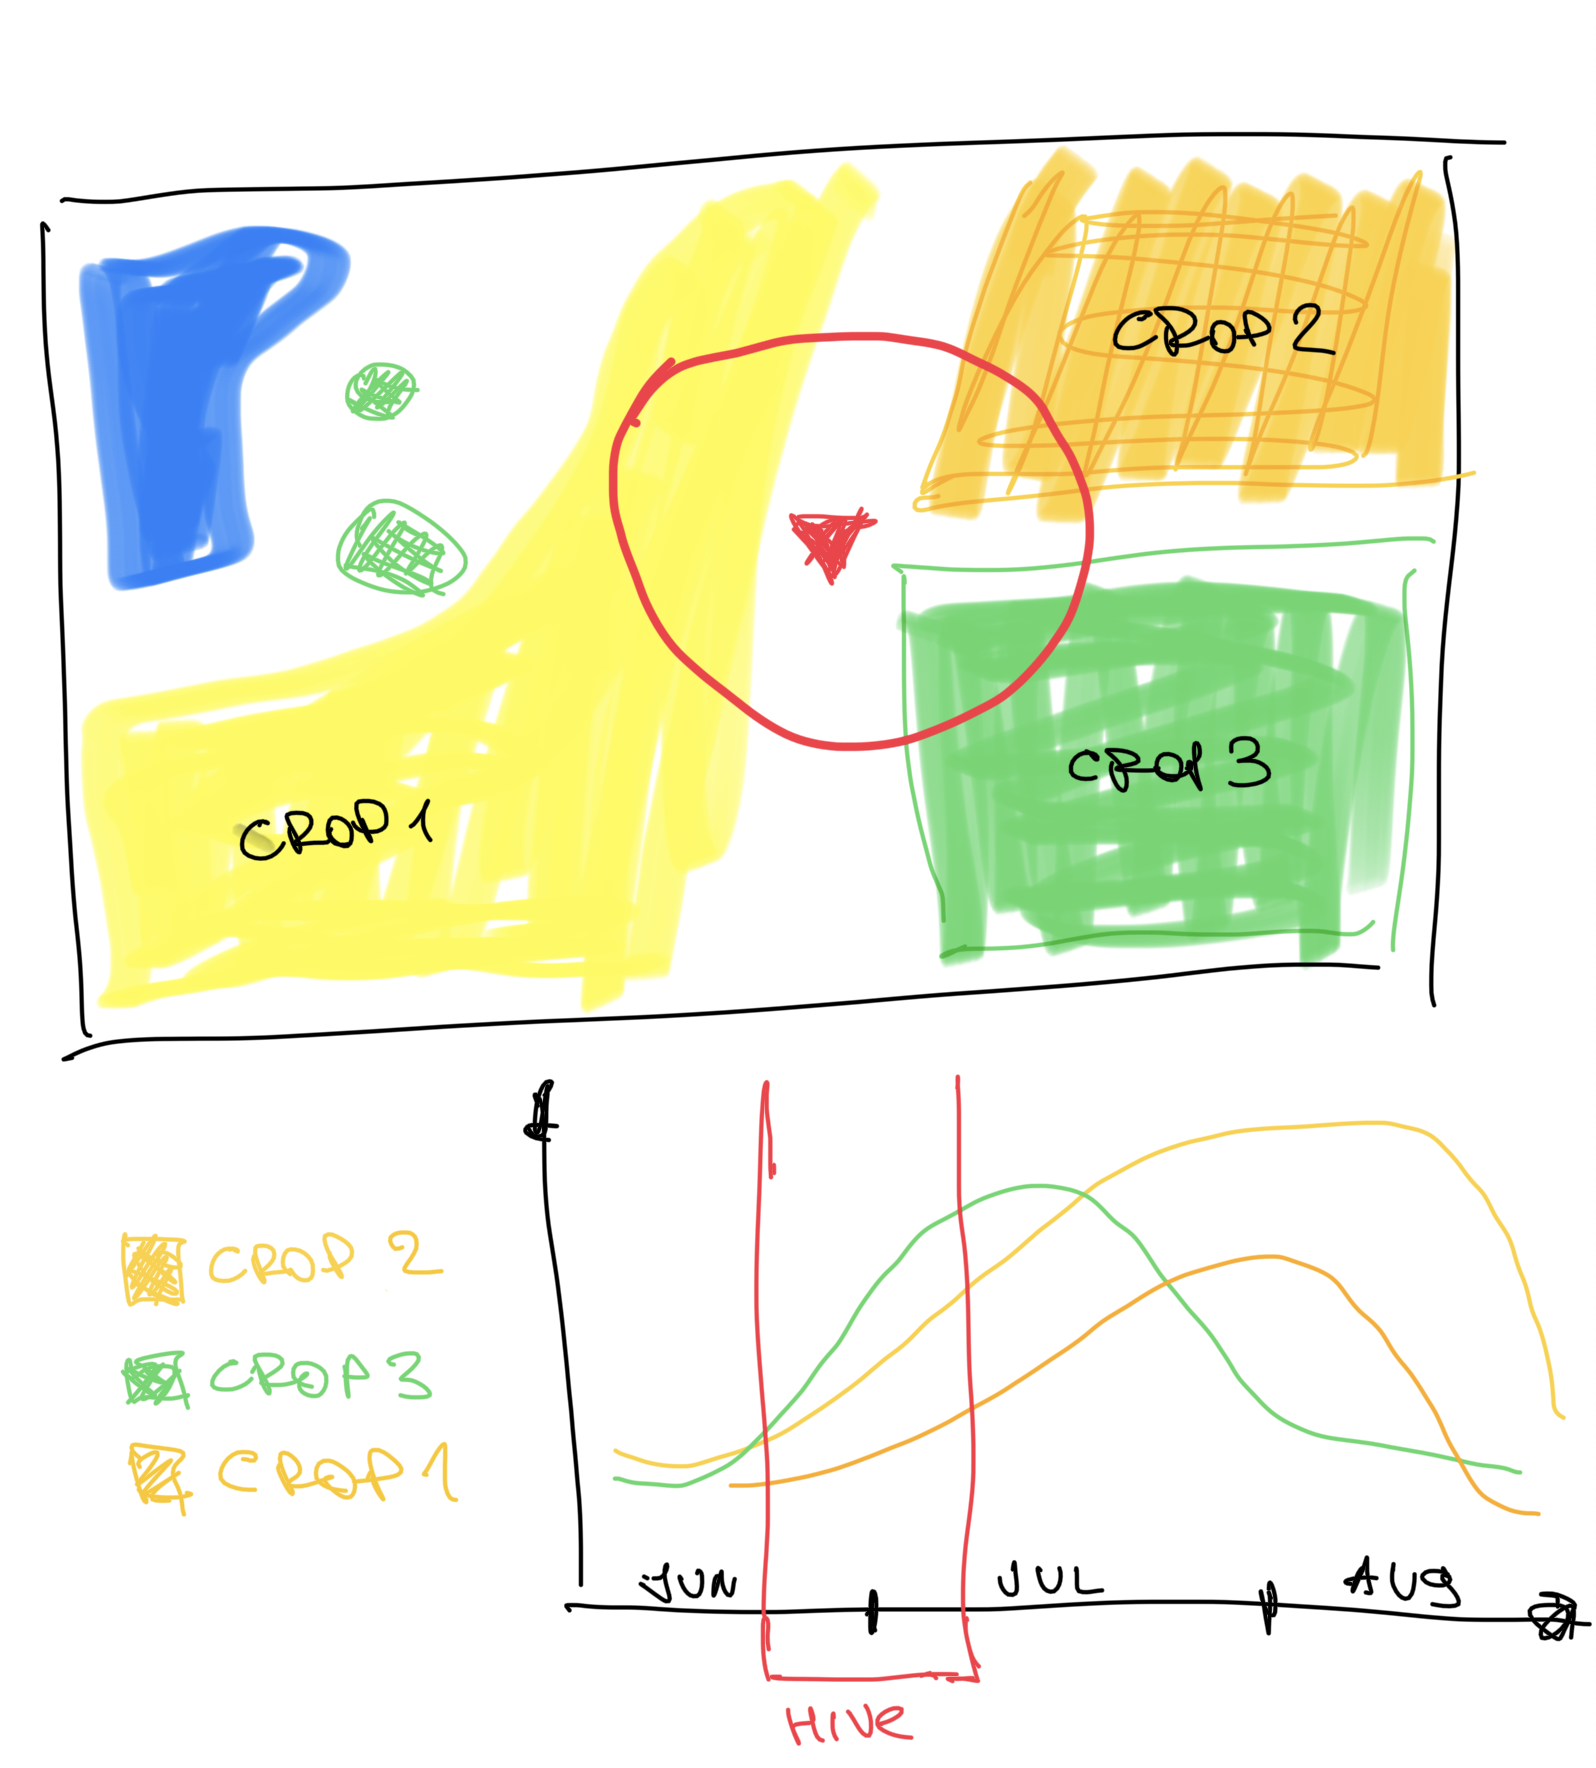 CROP 2
CROP 3
CROP 1
CROP 2
CROP 3
CROP 1
JUN JUL AUG
HIVE